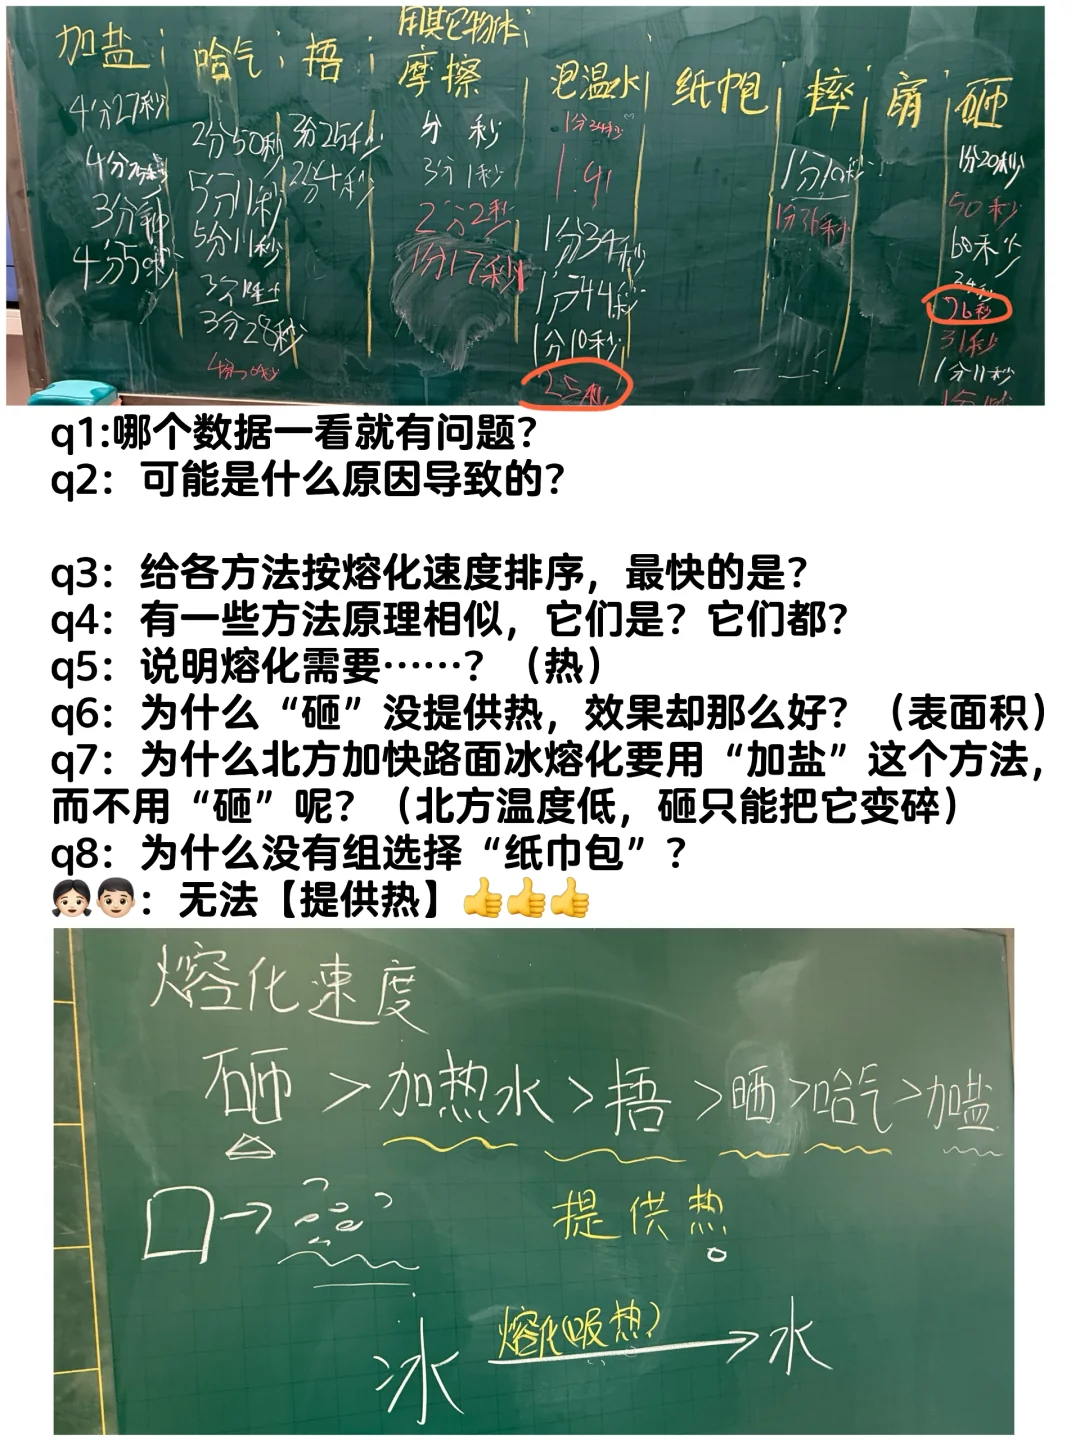 加盐
哈气
捂
用其它物体
摩擦
泡温水
纸巾包
摔
扇
砸
4分27秒
3分钟
4分50秒
2分50秒
5分11秒
5分11秒
3分28秒
3分25秒
2分4秒
分 秒
3分1秒
2分2秒
1分17秒
1分34秒
1:41
1分34秒
1分44秒
1分10秒
25秒
1分10秒
1分36秒
1分20秒
50秒
60秒
34秒
26秒
31秒
1分11秒
q1:哪个数据一看就有问题？
q2：可能是什么原因导致的？
q3：给各方法按熔化速度排序，最快的是？
q4：有一些方法原理相似，它们是？它们都？
q5：说明熔化需要……？（热）
q6：为什么“砸”没提供热，效果却那么好？（表面积）
q7：为什么北方加快路面冰熔化要用“加盐”这个方法，
而不用“砸”呢？（北方温度低，砸只能把它变碎）
q8：为什么没有组选择“纸巾包”？
👧🏻👦🏻：无法【提供热】👍👍👍
熔化速度
砸 > 加热水 > 捂 > 晒 > 哈气 > 加盐
提供热
熔化(吸热)
冰 → 水